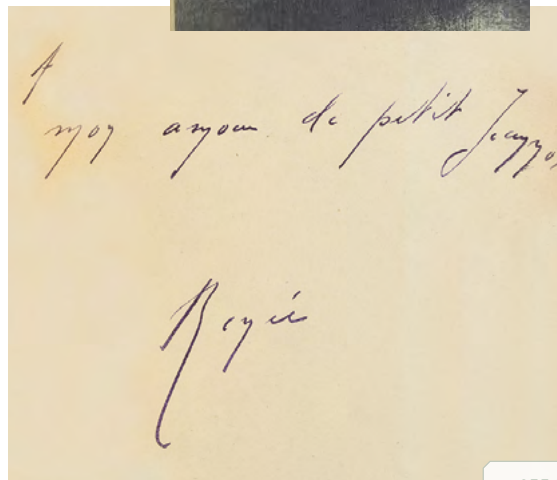 A
mon amour de petit Jeanno
Renée